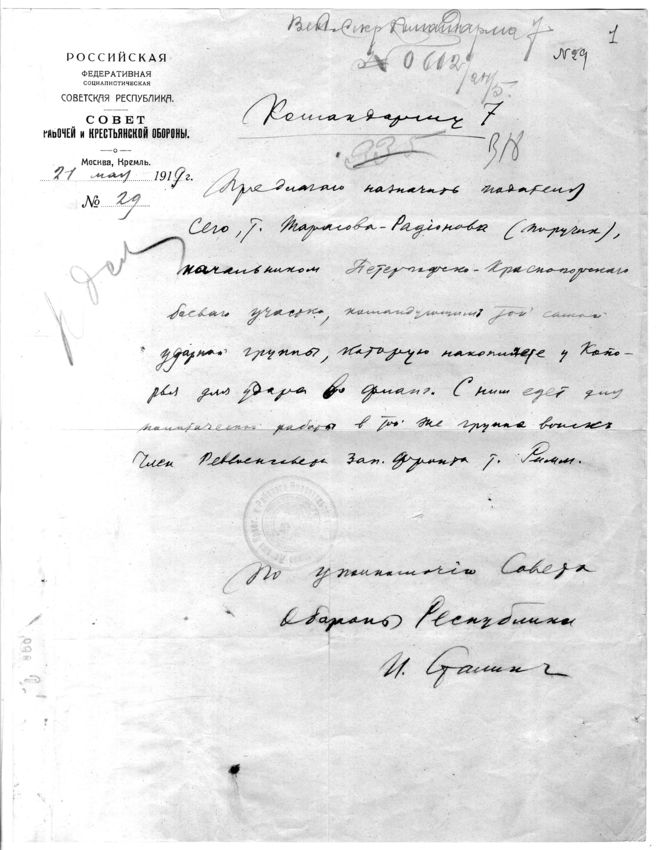 7
1
№ 29
РОССИЙСКАЯ
ФЕДЕРАТИВНАЯ
СОЦИАЛИСТИЧЕСКАЯ
СОВЕТСКАЯ РЕСПУБЛИКА.
СОВЕТ
РАБОЧЕЙ и КРЕСТЬЯНСКОЙ ОБОРОНЫ.
Москва, Кремль.
21 мая 1919 г.
№ 29
№ 0602
Командарму 7
335
К делу
Предлагаю назначить подателя
сего, т. Тарасова-Радионова (поручик),
начальником Петергофско-Красногорского
боевого участка, командующим той самой
ударной группы, которую накопляете у Копо-
рья для удара во фланг. С ним едет для
политической работы в той же группе войск
член Реввоенсовета Зап. Фронта т. Римм.
По уполномочию Совета
Обороны Республики
И. Сталин